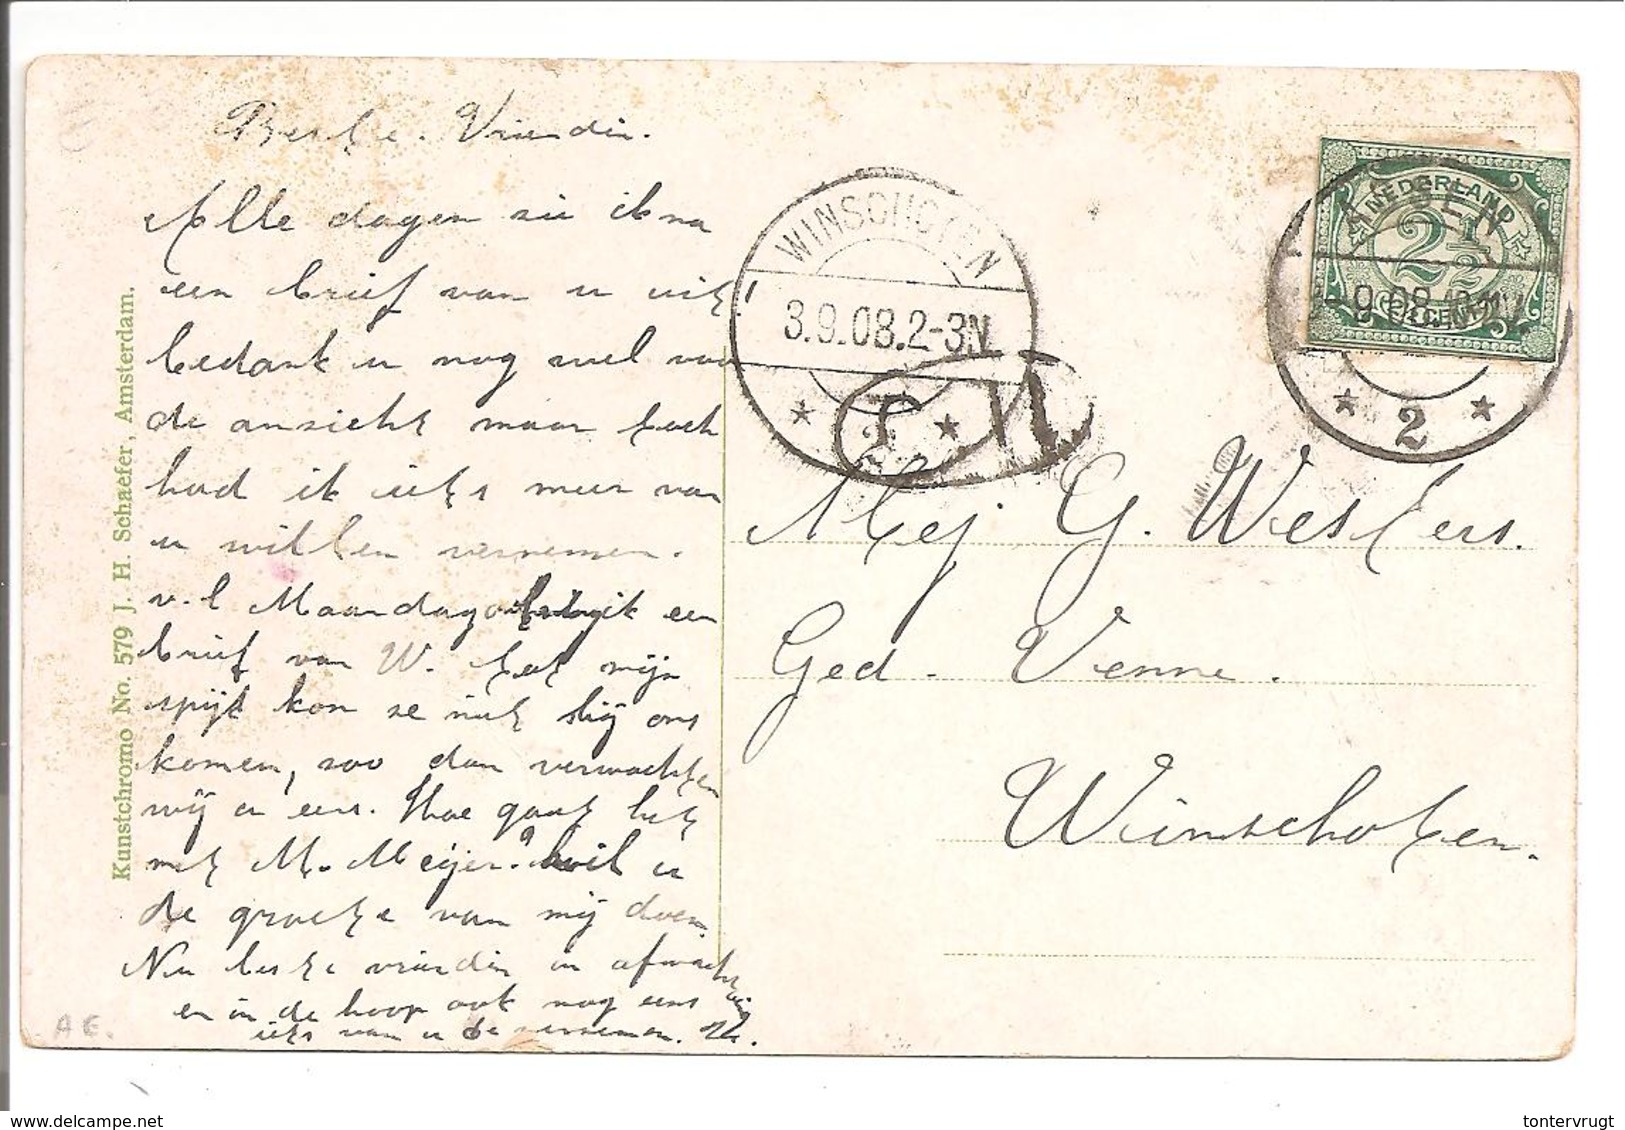 Beste. Vriendin.
Alle dagen zie ik na
een brief van u uit!
bedankt u nog wel voor
de ansicht maar toch
had ik iets meer van
u willen vernemen.
v.l Maandag ik een
brief van W. tot mijn
spijt kon ze niet bij ons
komen, zoo dan verwachten
wij er eens. Hoe gaat het
met M. Meijer? wil u
de groete van mij doen.
Nu beste vriendin in afwachting
en in de hoop ook nog eens
iets van u te vernemen.
Kunstchromo No. 579 J. H. Schaefer, Amsterdam.
WINSCHOTEN
3.9.08.2-3N
NEDERLAND
2 1/2
CENT
2
Mej G. Westers.
Ged. Venne.
Winschoten.
A E.
delcampe.net
tontervrugt